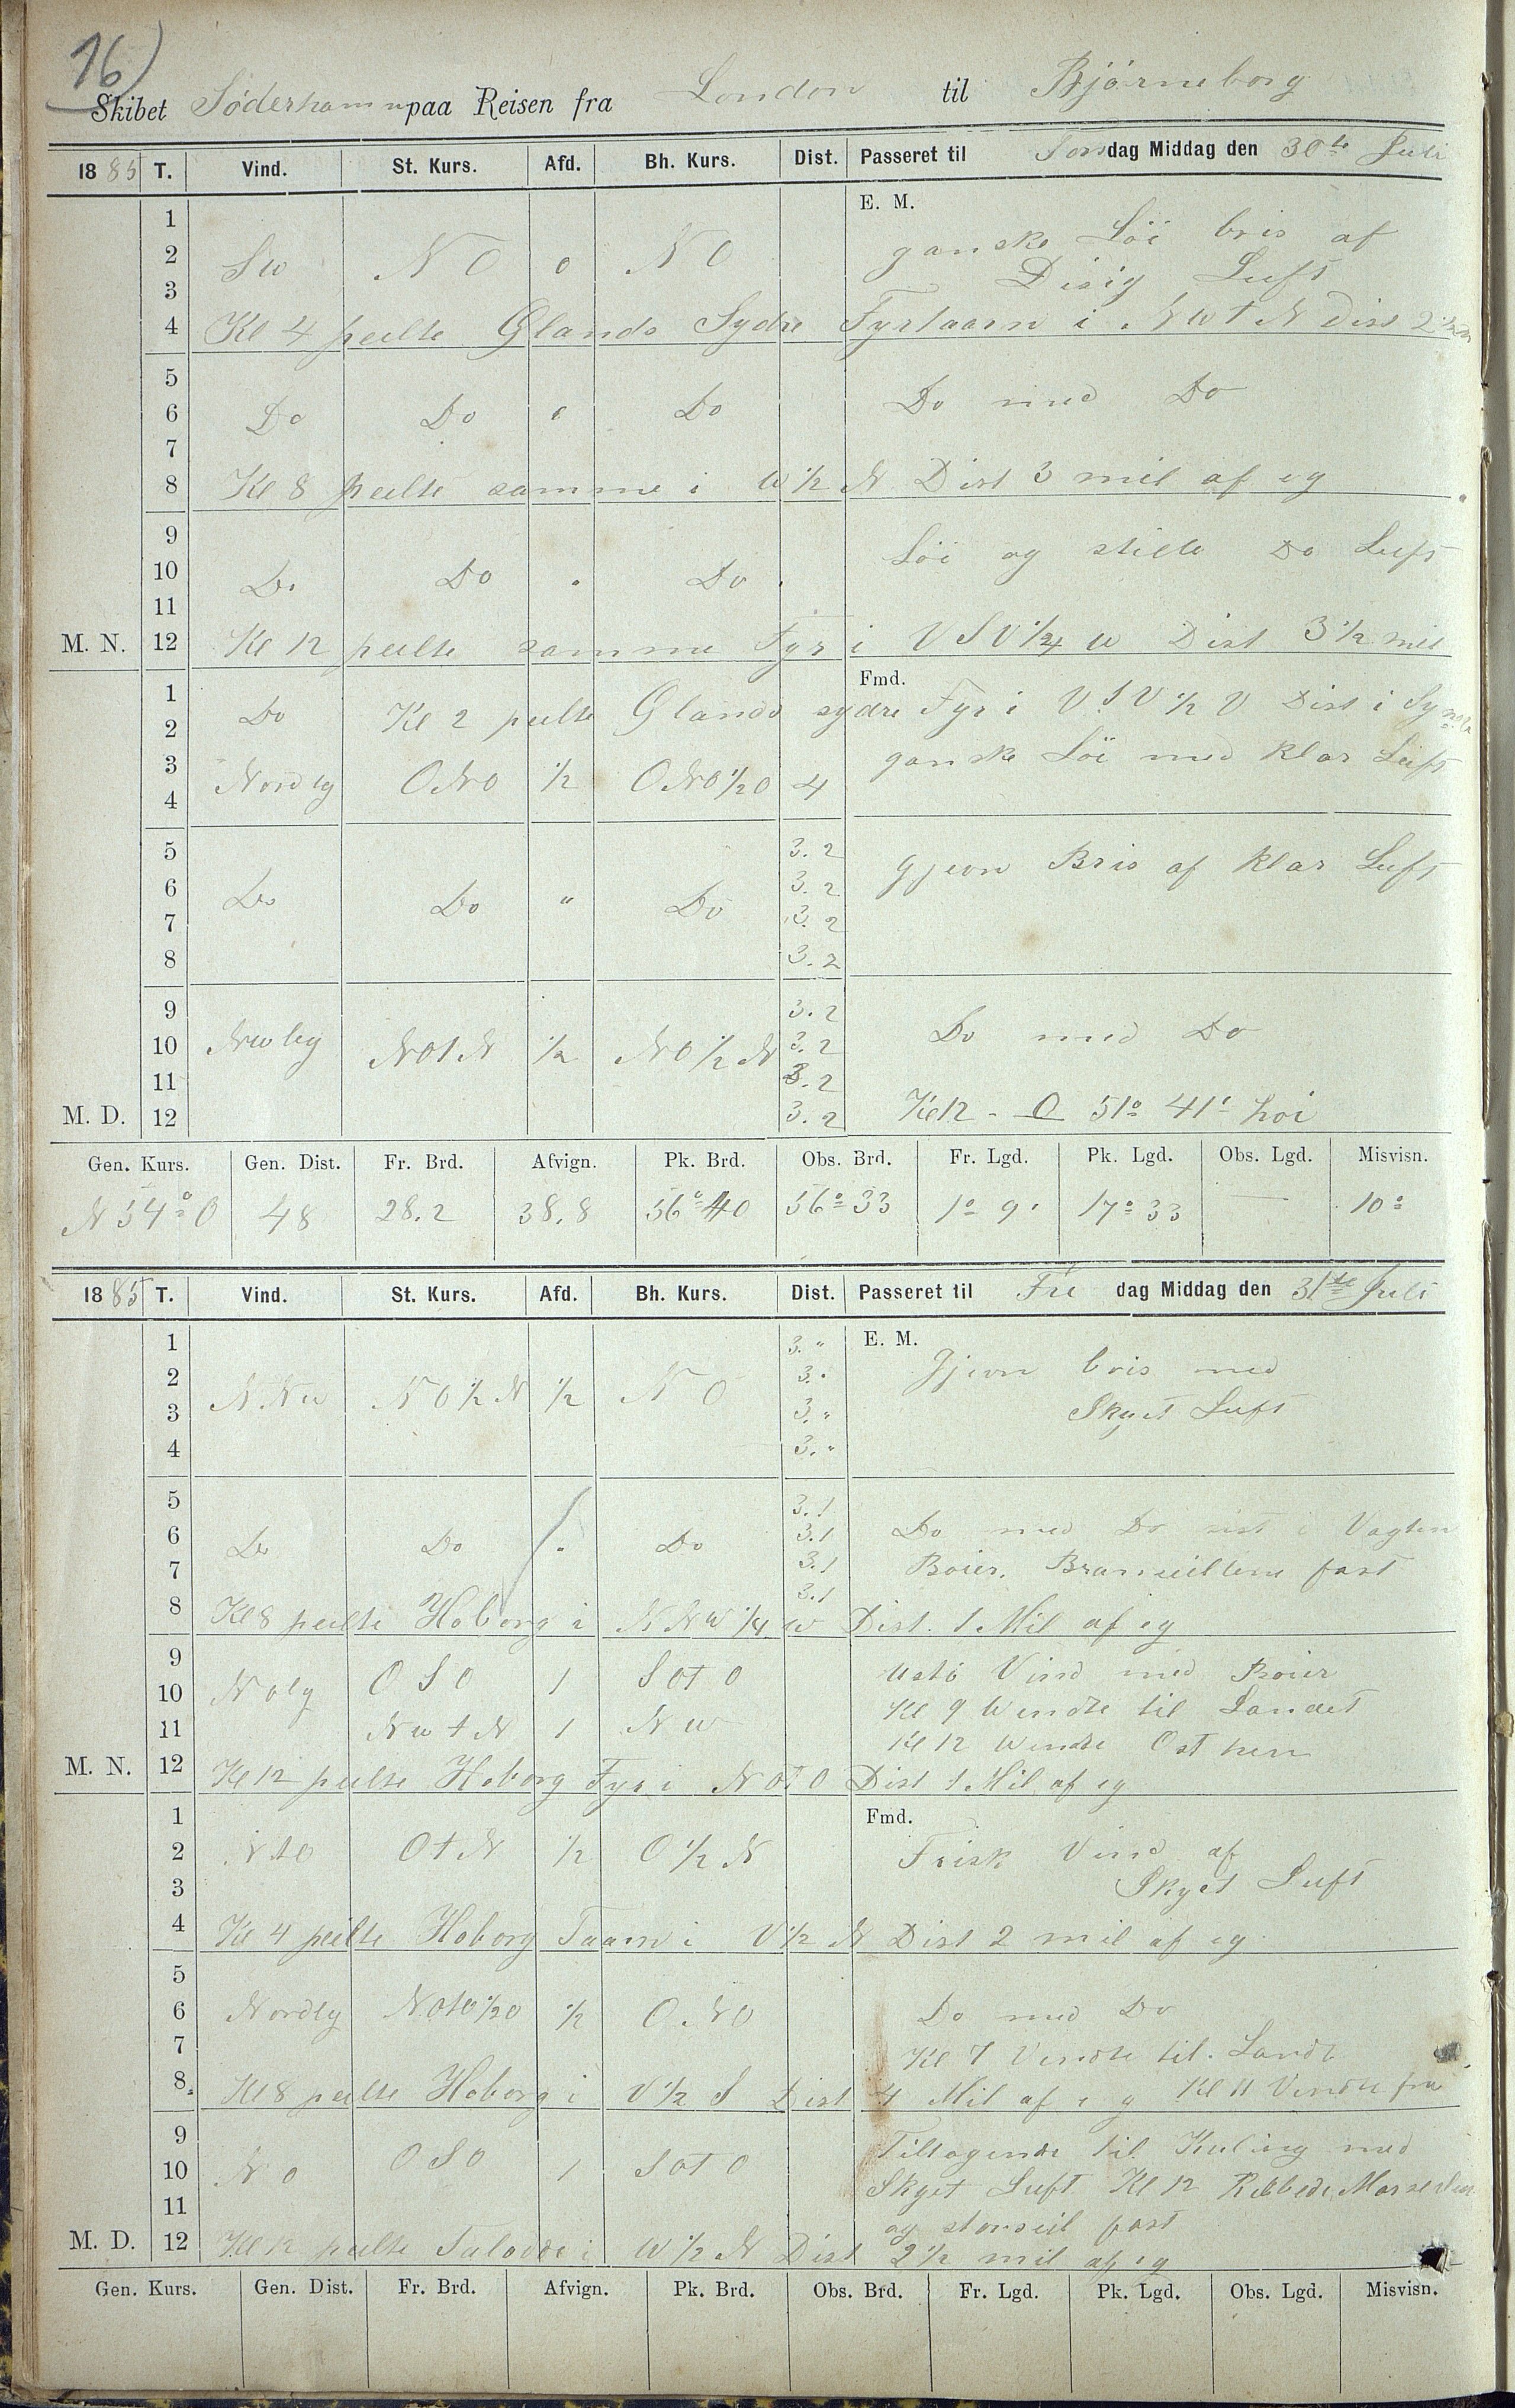 16)
Skibet Söderhamn paa Reisen fra London til Bjørneborg
1885 T. Vind. St. Kurs. Afd. Bh. Kurs. Dist. Passeret til Torsdag Middag den 30te Juli
E. M.
1
2 Sw NO 0 NO ganske Löi bris af
3 Disig Luft
4 Kl 4 peilte Ølands Sydre Fyrtaarn i NWtN Dist 2 1/2
5
6 Do Do 0 Do Do med Do
7
8 Kl 8 peilte samme i W 1/2 N Dist 3 mil af eg
9 Löi og stille Do Luft
10 Do Do " Do
11
M. N. 12 Kl 12 peilte samme Fyr i VSV 1/4 W Dist 3 1/2 mil
Fmd.
1 Do Kl 2 peilte Ølands sydre Fyr i VSV 1/2 V Dist i
2
3 Nordlig ONO 1/2 ONO 1/2 O 4 ganske Löi med klar Luft
4
5 3.2 gjevn Bris af klar Luft
6 Do Do " Do 3.2
7 3.2
8 3.2
9 3.2
10 NWlig NOtN 1/2 NO 1/2 N 3.2 Do med Do
11 3.2
M. D. 12 3.2 Kl 12 - O 51° 41' höi
Gen. Kurs. Gen. Dist. Fr. Brd. Afvign. Pk. Brd. Obs. Brd. Fr. Lgd. Pk. Lgd. Obs. Lgd. Misvisn.
N 54° O 48 28.2 38.8 56° 40 56° 33 1° 9' 17° 33 10°
1885 T. Vind. St. Kurs. Afd. Bh. Kurs. Dist. Passeret til Fredag Middag den 31te Juli
E. M.
1 3."
2 NNW NO 1/2 N 1/2 NO 3." Gjevn bris med
3 3." Skyet Luft
4 3."
5 3.1
6 Do Do " Do 3.1 Do med Do sist i Vagten
7 3.1 Boier. fast
8 3.1
Kl 8 peilte Hoborg i NNW 1/4 W Dist. 1 Mil af eg
9 NOlg OSO 1 SOtO Ustö Vind med Boier
10 Kl 9 Wendte til Landet
11 NWtN 1 NW Kl 12 Wendte Ost hen
M. N. 12 Kl 12 peilte Hoborg Fyr i NOtO Dist 1 Mil af eg
Fmd.
1
2 NtO OtN 1/2 O 1/2 N Frisk Vind af
3 Skyet Luft
4 Kl 4 peilte Hoborg Taarn i V 1/2 N Dist 2 mil af eg
5
6 Nordlg NOtO 1/2 O 1/2 ONO Do med Do
7 Kl 7 Vendte til Landt
8 Kl 8 peilte Hoborg i V 1/2 S Dist 4 Mil af eg Kl 11 Vendte fra
9 Tiltagende til Kuling med
10 NO OSO 1 SOtO Skyet Luft Kl 12 Rebbede
11 og storseil fast
M. D. 12 Kl 12 peilte i W 1/2 N Dist 2 1/2 mil af eg
Gen. Kurs. Gen. Dist. Fr. Brd. Afvign. Pk. Brd. Obs. Brd. Fr. Lgd. Pk. Lgd. Obs. Lgd. Misvisn.